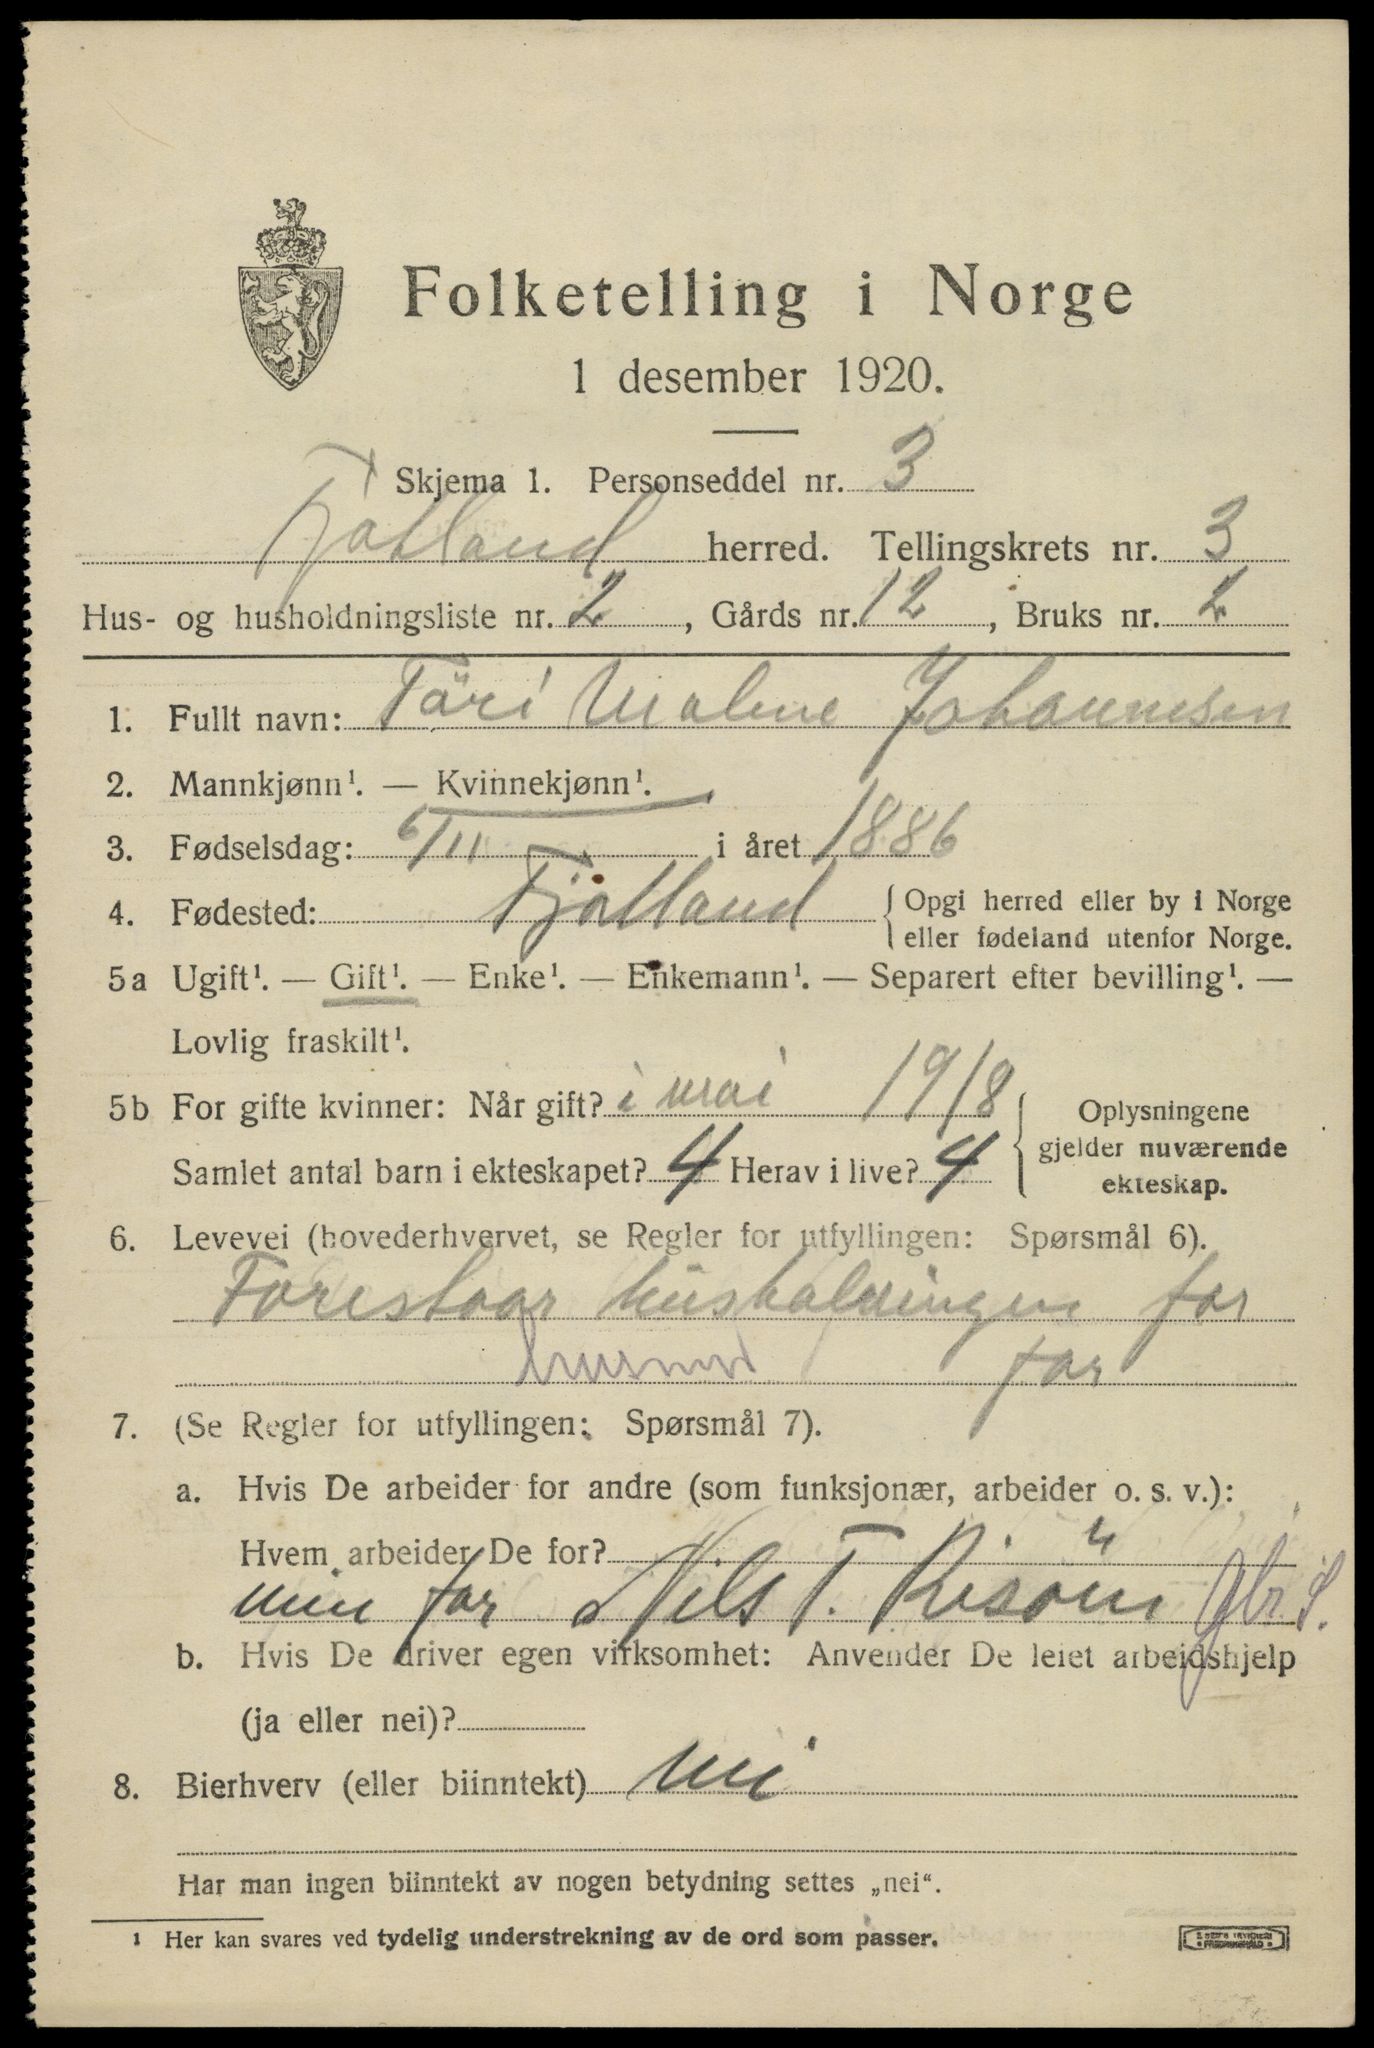 Folketelling i Norge
1 desember 1920.
Skjema 1. Personseddel nr. 3
Fjotland herred. Tellingskrets nr. 3
Hus- og husholdningsliste nr. 2, Gårds nr. 12, Bruks nr. 2
1. Fullt navn: Töri Malene Johannesen
2. Mannkjønn¹. — Kvinnekjønn¹.
3. Fødselsdag: 6/11 i året 1886
4. Fødested: Fjotland { Opgi herred eller by i Norge
eller fødeland utenfor Norge.
5a Ugift¹. — Gift¹. — Enke¹. — Enkemann¹. — Separert efter bevilling¹. —
Lovlig fraskilt¹.
5b For gifte kvinner: Når gift? i mai 1918
Samlet antal barn i ekteskapet? 4 Herav i live? 4
{ Oplysningene
gjelder nuværende
ekteskap.
6. Levevei (hovederhvervet, se Regler for utfyllingen: Spørsmål 6).
Forestaar husholdningen for
husmor far
7. (Se Regler for utfyllingen: Spørsmål 7).
a. Hvis De arbeider for andre (som funksjonær, arbeider o. s. v.):
Hvem arbeider De for?
min far Nils T. Risön Gbr. S.
b. Hvis De driver egen virksomhet: Anvender De leiet arbeidshjelp
(ja eller nei)?
8. Bierhverv (eller biinntekt) nei
Har man ingen biinntekt av nogen betydning settes „nei“.
¹ Her kan svares ved tydelig understrekning av de ord som passer.